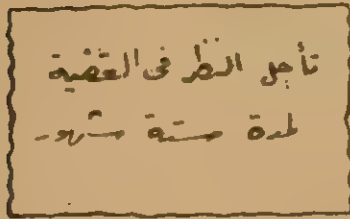 تأجل النظر في القضية
لمدة ستة شهور